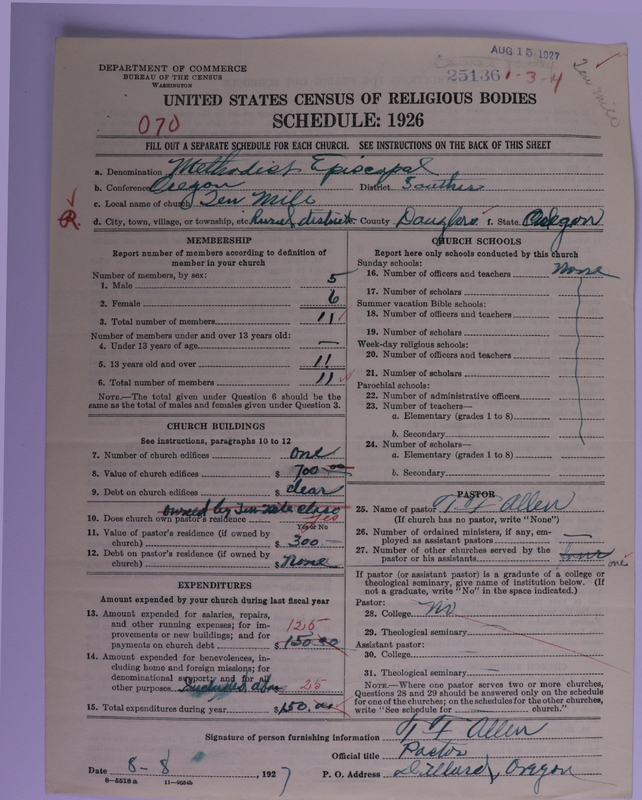 AUG 15 1927
25136 1-3-4
Ten Mile
DEPARTMENT OF COMMERCE
BUREAU OF THE CENSUS
WASHINGTON
UNITED STATES CENSUS OF RELIGIOUS BODIES
070
SCHEDULE: 1926
FILL OUT A SEPARATE SCHEDULE FOR EACH CHURCH. SEE INSTRUCTIONS ON THE BACK OF THIS SHEET
a. Denomination Methodist Episcopal
b. Conference Oregon District Southern
c. Local name of church Ten Mile
R. d. City, town, village, or township, etc. Rural district e. County Douglas f. State Oregon
MEMBERSHIP
Report number of members according to definition of
member in your church
Number of members, by sex:
1. Male 5
2. Female 6
3. Total number of members 11
Number of members under and over 13 years old:
4. Under 13 years of age —
5. 13 years old and over 11
6. Total number of members 11
NOTE.—The total given under Question 6 should be the
same as the total of males and females given under Question 3.
CHURCH BUILDINGS
See instructions, paragraphs 10 to 12
7. Number of church edifices one
8. Value of church edifices $ 700 00
9. Debt on church edifices $ clear
owned by Ten Mile
10. Does church own pastor's residence yes
Yes or No
11. Value of pastor's residence (if owned by
church) $ 300 —
12. Debt on pastor's residence (if owned by
church) $ None
EXPENDITURES
Amount expended by your church during last fiscal year
13. Amount expended for salaries, repairs,
and other running expenses; for im-
provements or new buildings; and for
payments on church debt 125 $ 150.00
14. Amount expended for benevolences, in-
cluding home and foreign missions; for
denominational support; and for all
other purposes Included above 25
15. Total expenditures during year $ 150.00
CHURCH SCHOOLS
Report here only schools conducted by this church
Sunday schools:
16. Number of officers and teachers None
17. Number of scholars
Summer vacation Bible schools:
18. Number of officers and teachers
19. Number of scholars
Week-day religious schools:
20. Number of officers and teachers
21. Number of scholars
Parochial schools:
22. Number of administrative officers
23. Number of teachers—
a. Elementary (grades 1 to 8)
b. Secondary
24. Number of scholars—
a. Elementary (grades 1 to 8)
b. Secondary
PASTOR
25. Name of pastor T F Allen
(If church has no pastor, write "None")
26. Number of ordained ministers, if any, em-
ployed as assistant pastors —
27. Number of other churches served by the
pastor or his assistants four one
If pastor (or assistant pastor) is a graduate of a college or
theological seminary, give name of institution below. (If
not a graduate, write "No" in the space indicated.)
Pastor:
28. College No
29. Theological seminary
Assistant pastor:
30. College
31. Theological seminary
NOTE.—Where one pastor serves two or more churches,
Questions 28 and 29 should be answered only on the schedule
for one of the churches; on the schedules for the other churches,
write "See schedule for church."
Signature of person furnishing information T F Allen
Official title Pastor
Date 8-8, 1927 P. O. Address Dillard, Oregon
8-5518 a 11-9504b